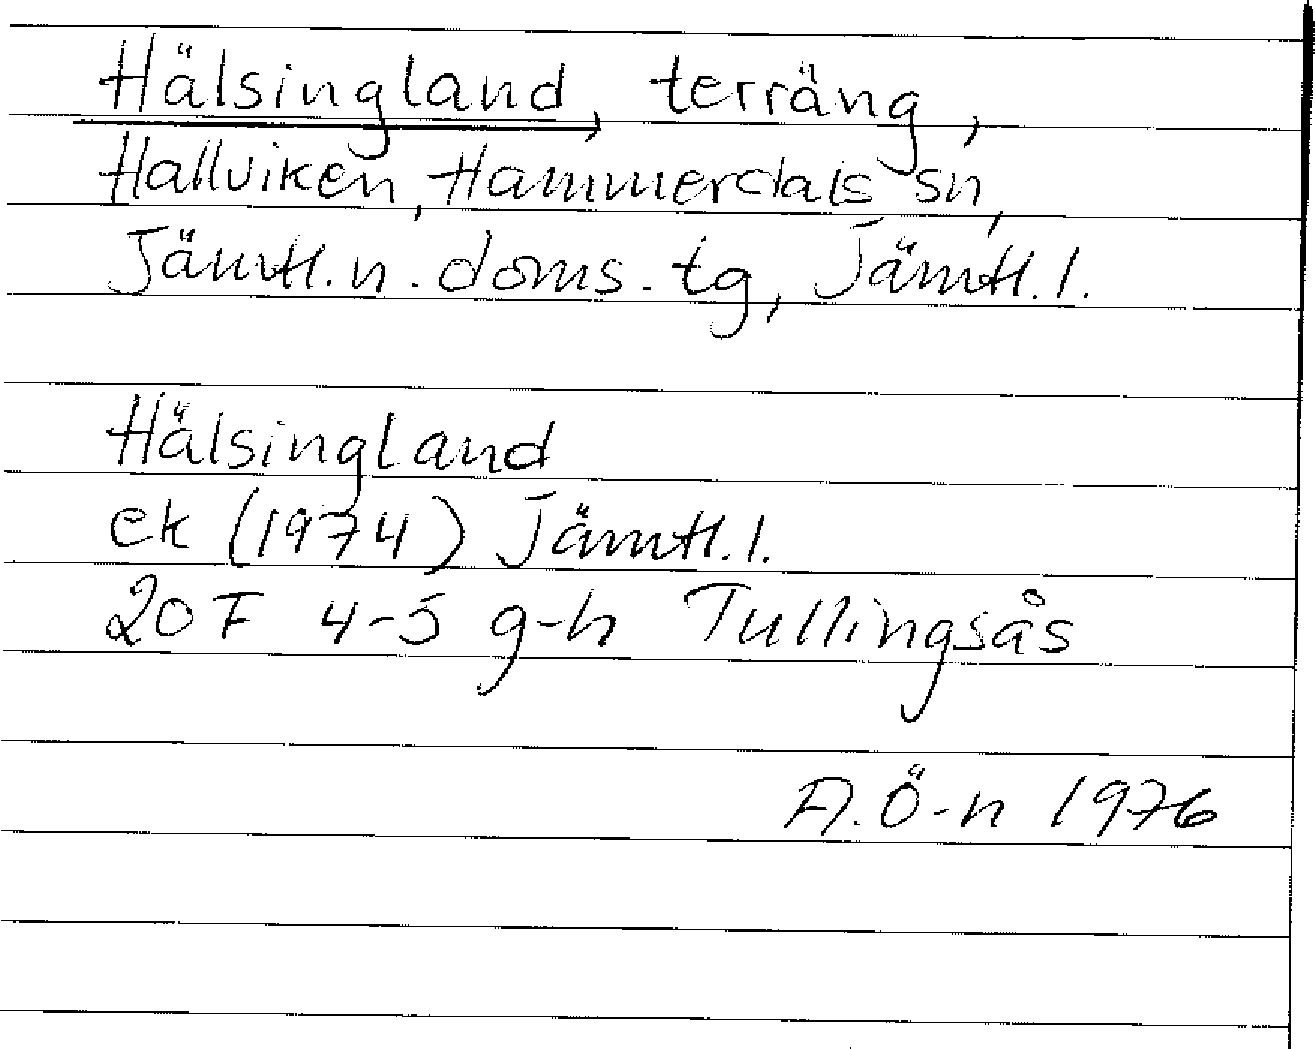 Hälsingland, terräng,
Hallviken, Hammerdals sn,
Jämtl. n. doms. tg, Jämtl. l.
Hälsingland
ek (1974) Jämtl. l.
20 F 4-5 g-h Tullingsås
A. Ö-n 1976